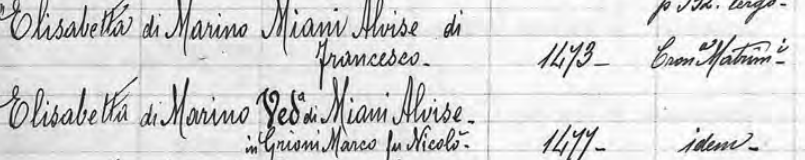 p 132. tergo-
Elisabetta di Marino Miani Alvise di
Francesco- 1473- Cronª Matrimⁱ-
Elisabetta di Marino Vedª di Miani Alvise-
in Grioni Marco fu Nicolò- 1477- idem-